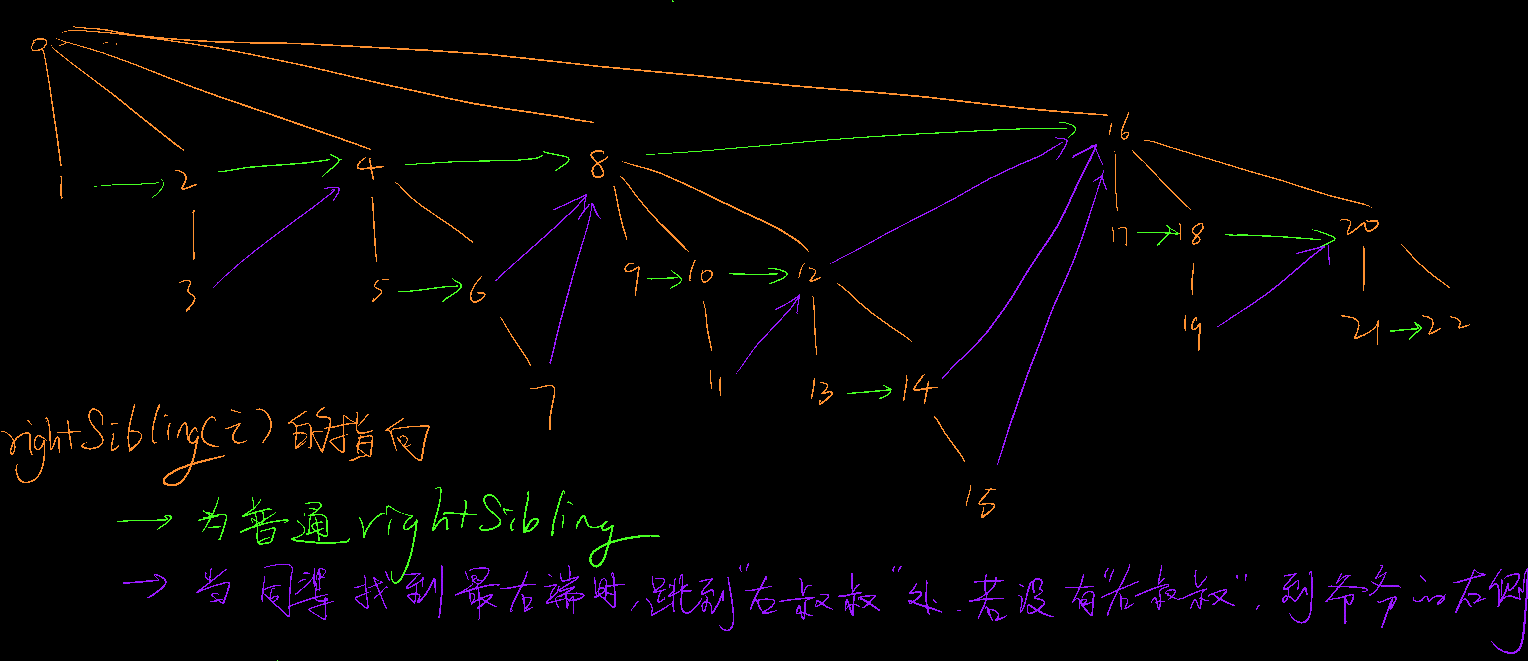 0
16
1 2 4 8
3 5 6 9 10 12 17 18 20
7 11 13 14 19 21 22
15
rightSibling(i) 的指向
→ 为普通 rightSibling
→ 当同辈找到最右端时,跳到"右叔叔"处.若没有"右叔叔",到爷爷的右侧